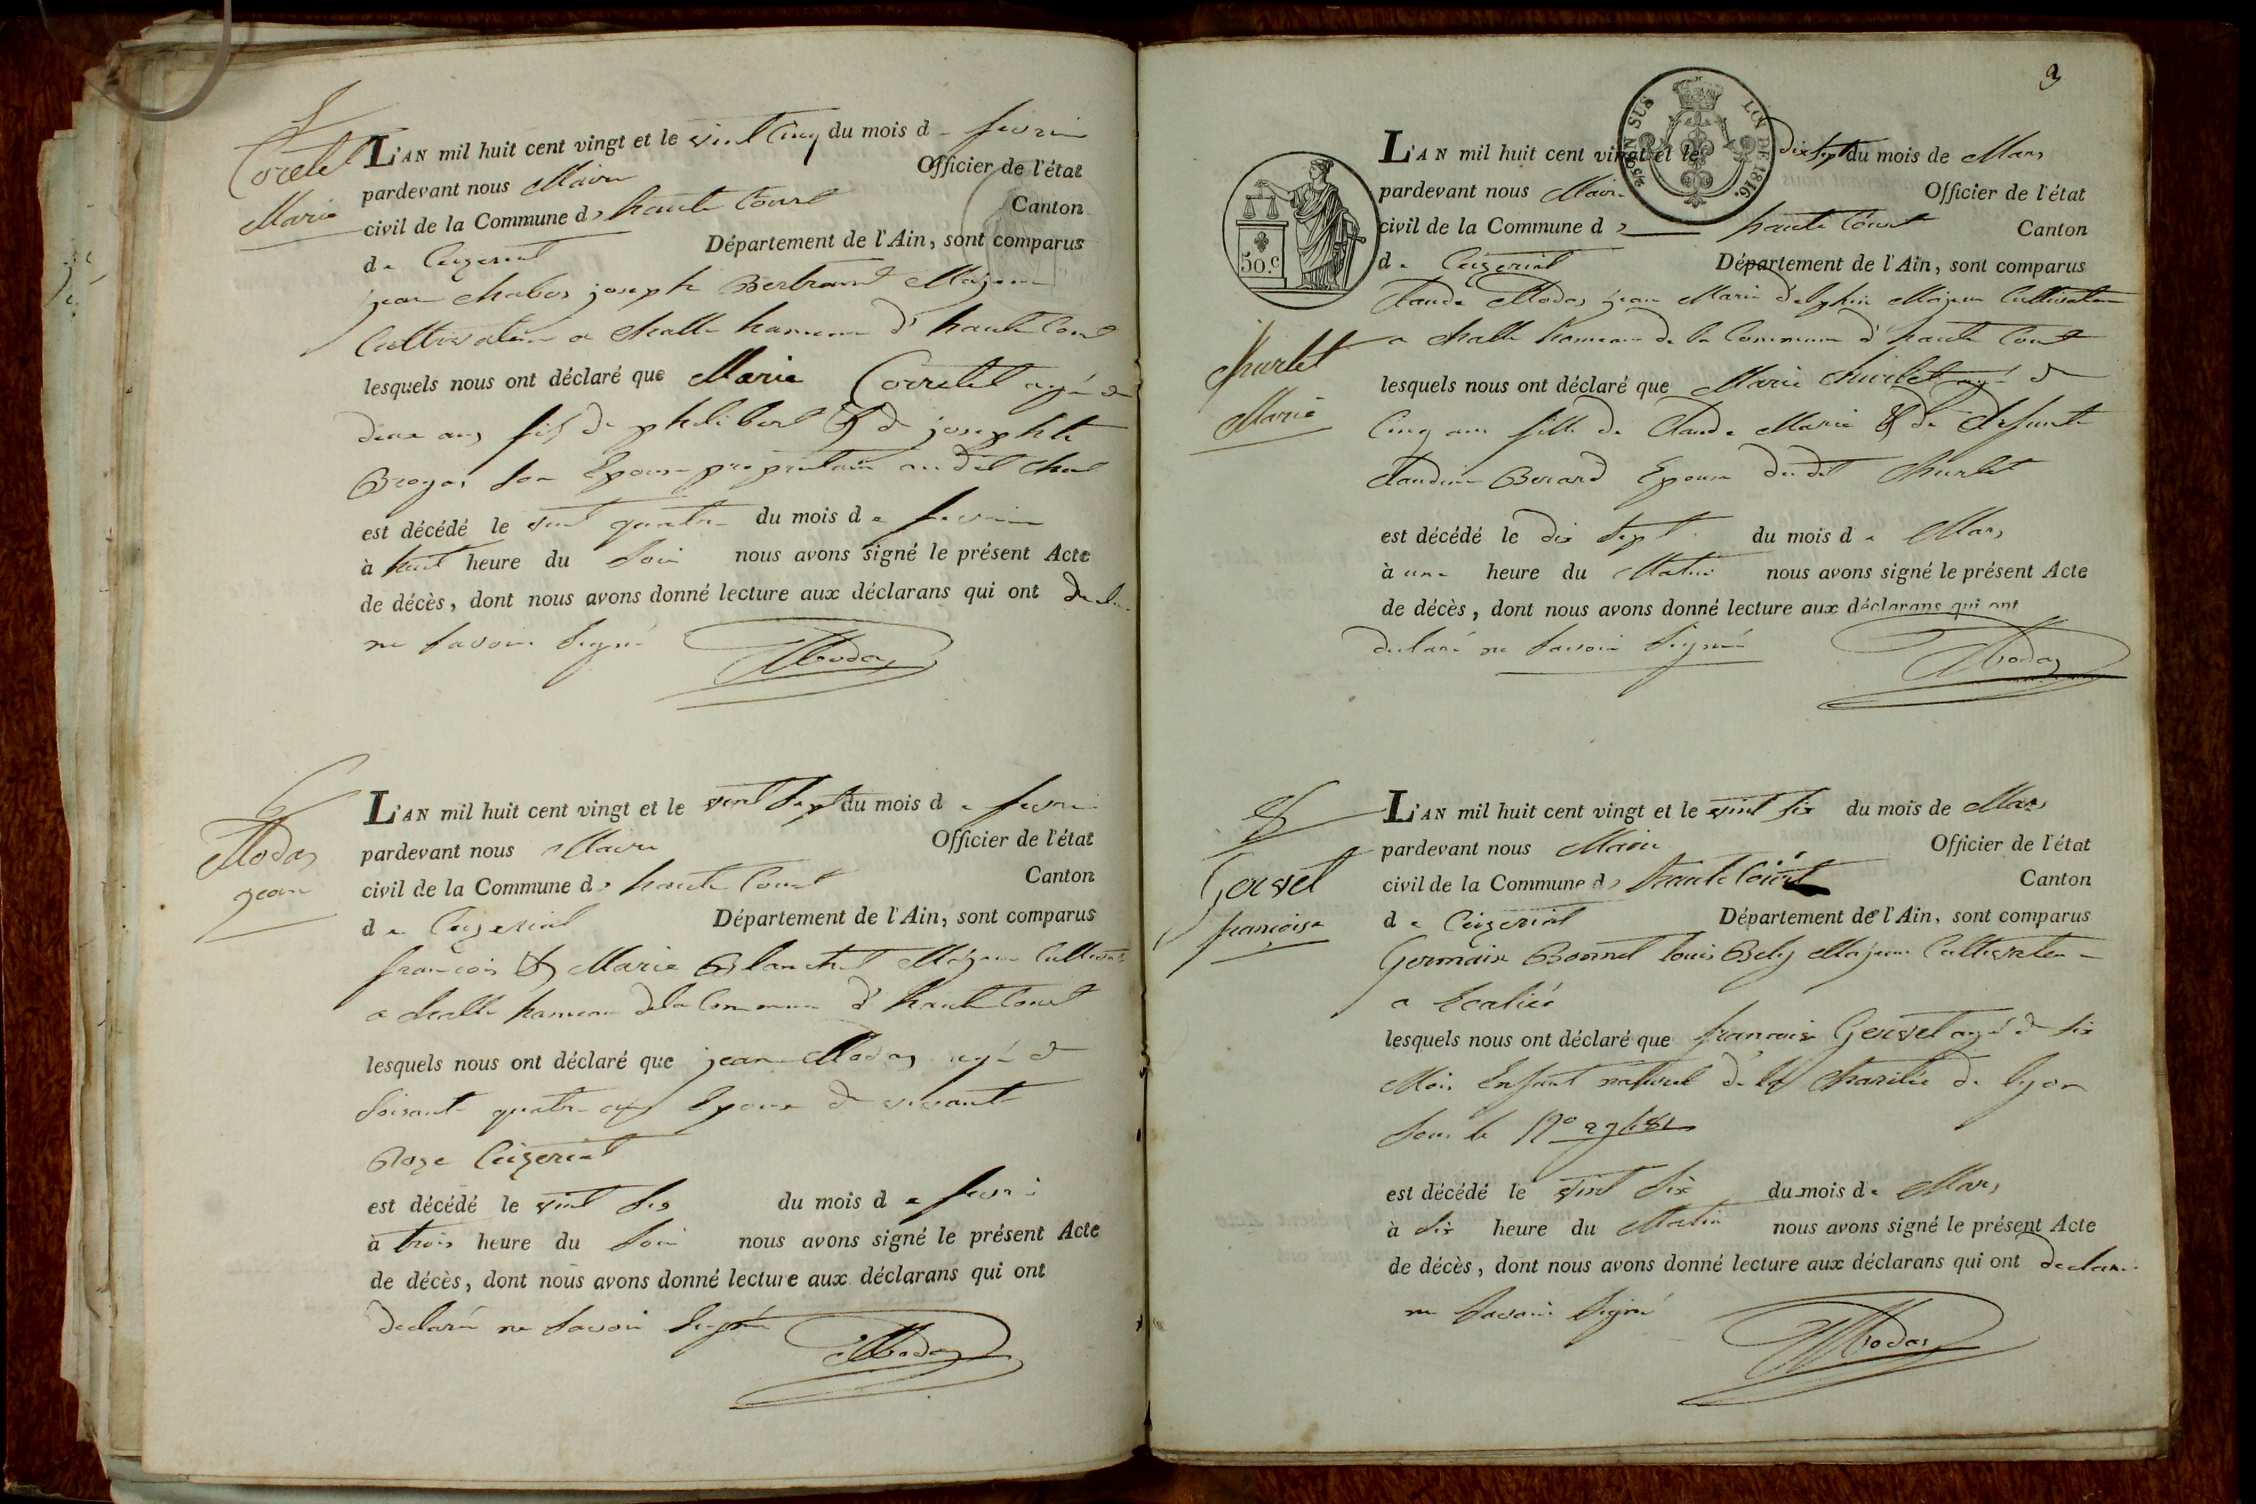 5
Coretet
Marie
L'AN mil huit cent vingt et le vint cinq du mois de fevrier
pardevant nous Maire Officier de l'état
civil de la Commune d haute Court Canton
de Ceyzeriat Département de l'Ain, sont comparus
jean Chabos joseph Bertrand Majeur
Cultivateur a Challe hameau d'haute Court
lesquels nous ont déclaré que Marie Corretet agé de
deux ans fils de philibert & de josephte
Broyas son Epouse propriétaire au dit
est décédé le vint quatre du mois de fevrier
à huit heure du Soir nous avons signé le présent Acte
de décès, dont nous avons donné lecture aux déclarans qui ont
ne Savoir Signé
Modas
6
Modas
jean
L'AN mil huit cent vingt et le vint Sept du mois de fevri
pardevant nous Maire Officier de l'état
civil de la Commune d haute Court Canton
de Ceyzeriat Département de l'Ain, sont comparus
francois & Marie Blanchet Majeur
a Challe hameau de la Commune d'haute Court
lesquels nous ont déclaré que jean Modas agé de
Soisante quatre ans Epoux de vivante
Roze Ceyzeriat
est décédé le vint Six du mois de fevri
à trois heure du Soir nous avons signé le présent Acte
de décès, dont nous avons donné lecture aux déclarans qui ont
declaré ne Savoir Signé
Modas
3
TIMBRE 50.c
LOI DE 1816.
Churlet
Marie
L'AN mil huit cent vingt et le dix Sept du mois de Mars
pardevant nous Maire Officier de l'état
civil de la Commune d haute Court Canton
de Ceyzeriat Département de l'Ain, sont comparus
Claude Modas jean Marie Delphin Majeur Cultivateur
a Challe hameau de la Commune d'haute Court
lesquels nous ont déclaré que Marie Churlet agé de
Cinq ans fille de Claude Marie & de defunte
Claudine Berard Epouse du dit Churlet
est décédé le dix Sept du mois de Mars
à une heure du Matin nous avons signé le présent Acte
de décès, dont nous avons donné lecture aux déclarans qui ont
declaré ne Savoir Signé
Modas
8
Gervet
francoise
L'AN mil huit cent vingt et le vint Six du mois de Mars
pardevant nous Maire Officier de l'état
civil de la Commune d haute Court Canton
de Ceyzeriat Département de l'Ain, sont comparus
Germain Bonnet louis Bely Majeur Cultivateur
a
lesquels nous ont déclaré que francoise Gervet agé de Six
Mois Enfant naturel de la Charitée de lyon
Sous le No
est décédé le vint Six du mois de Mars
à Six heure du Matin nous avons signé le présent Acte
de décès, dont nous avons donné lecture aux déclarans qui ont declaré
ne Savoir Signé
Modas